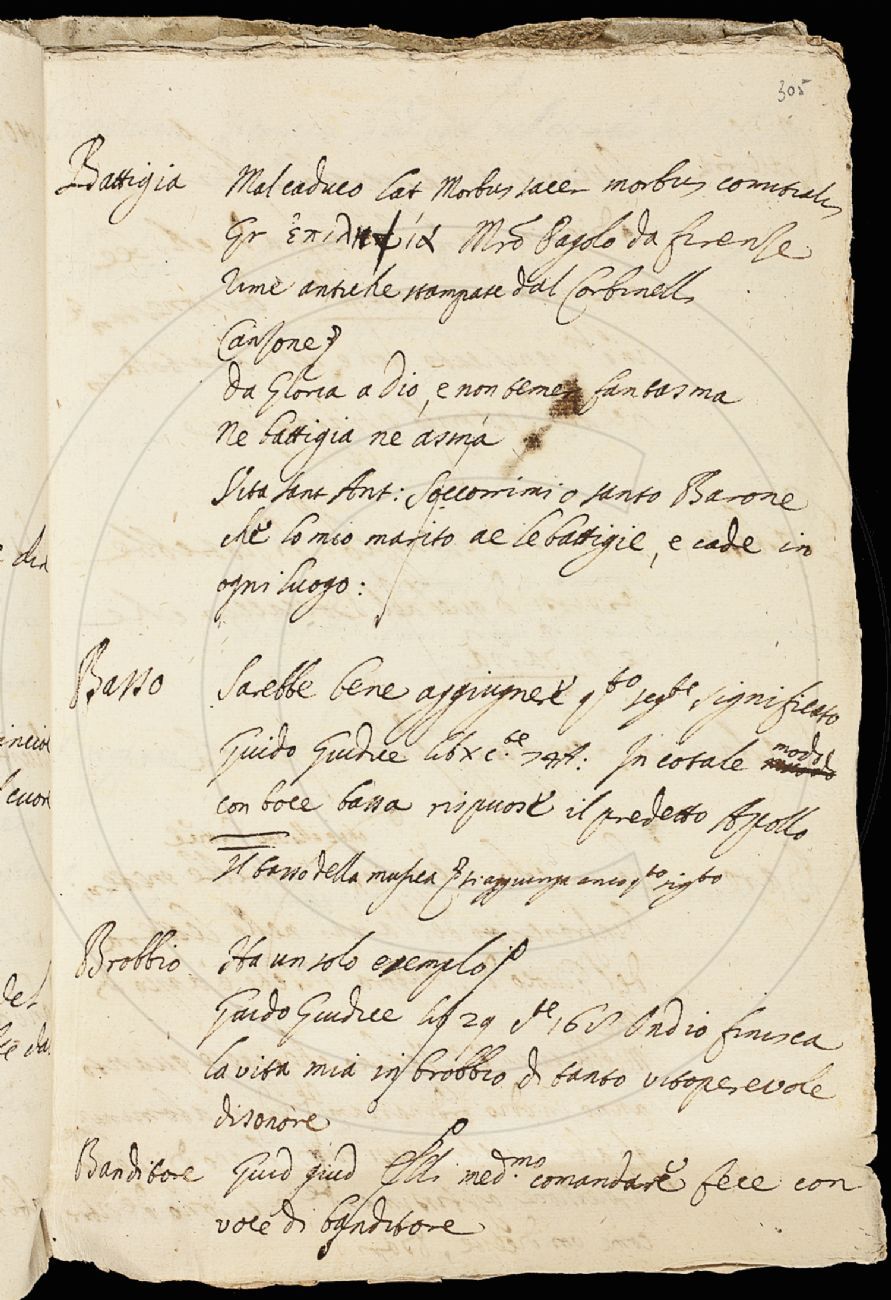 305
Battigia Mal caduco Lat Morbus sacer morbus comitialis
Gr Mrõ Pagolo da firenze
rime antiche stampate dal Corbinelli
Canzone
da gloria a Dio, e non temer fantasma
Ne battigia ne asma
Vita sant Ant: Soccorrimi o santo Barone
che lo mio marito ae le battigie, e cade in
ogni luogo:
Basso Sarebbe bene aggiugnere qto segte significato
Guido Giudice lib x c.te In cotale modo
con boce bassa rispuose il predetto Apollo
Il basso della musica si aggiunga anco qto
Brobbio Ha un solo esempio
Guido Giudice 29 Ond io finisca
la vita mia in brobbio di tanto vitoperevole
disonore
Banditore Guid giud Elli med.mo comandare fece con
voce di banditore
de L